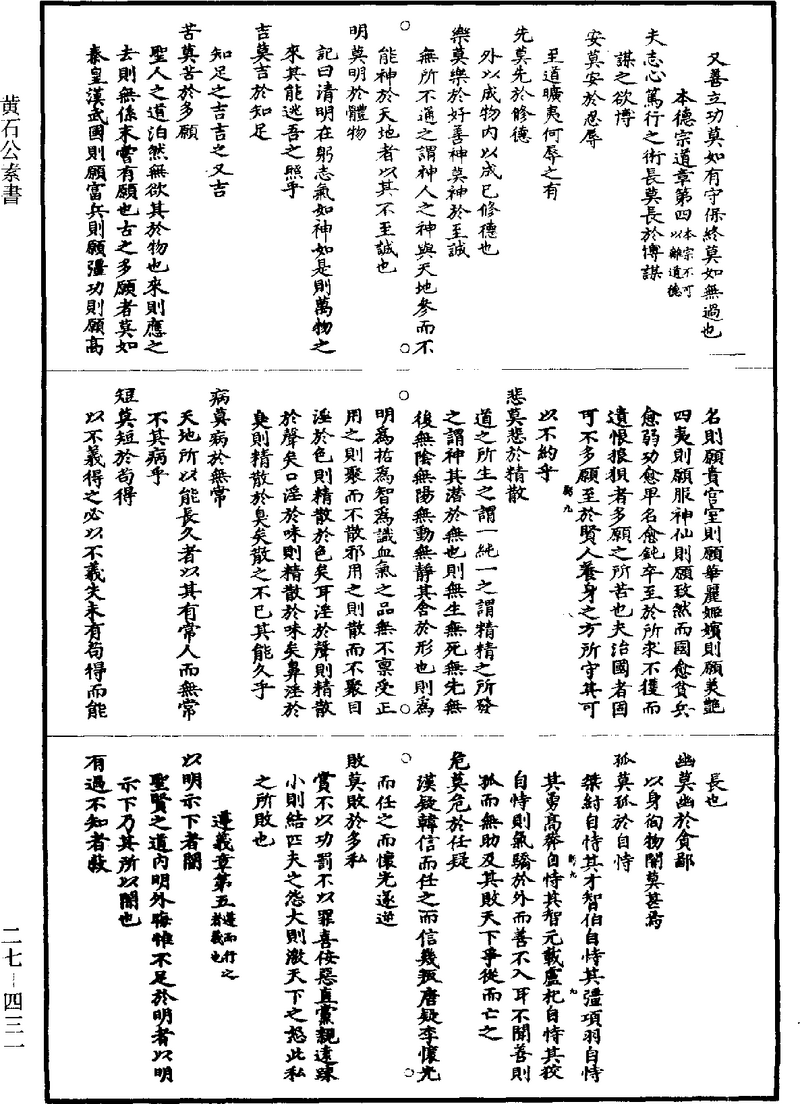 又善立功莫如有守保終莫如無過也
本德宗道章第四本宗不可以離道德
夫志心篤行之術長莫長於博謀
謀之欲博
安莫安於忍辱
至道曠夷何辱之有
先莫先於修德
外以成物内以成己修德也
樂莫樂於好善神莫神於至誠
無所不通之謂神人之神與天地參而不
能神於天地者以其不至誠也
明莫明於體物
記曰清明在躬志氣如神如是則萬物之
來其能逃吾之照乎
吉莫吉於知足
知足之吉吉之又吉
苦莫苦於多願
聖人之道泊然無欲其於物也來則應之
去則無係未嘗有願也古之多願者莫如
秦皇漢武國則願富兵則願彊功則願高
名則願貴宫室則願華麗姬嬪則願美艶
四夷則願服神仙則願致然而國愈貧兵
愈弱功愈卑名愈鈍卒至於所求不獲而
遺恨狼狽者多願之所苦也夫治國者固
可不多願至於賢人養身之方所守其可
以不約乎
悲莫悲於精散
道之所生之謂一純一之謂精精之所發
之謂神其潜於無也則無生無死無先無
後無陰無陽無動無靜其舍於形也則為
明為哲為智為識血氣之品無不禀受正
用之則聚而不散邪用之則散而不聚目
淫於色則精散於色矣耳淫於聲則精散
於聲矣口淫於味則精散於味矣鼻淫於
臭則精散於臭矣散之不已其能久乎
病莫病於無常
天地所以能長久者以其有常人而無常
不其病乎
短莫短於苟得
以不義得之必以不義失未有苟得而能
長也
幽莫幽於貪鄙
以身徇物闇莫甚焉
孤莫孤於自恃
桀紂自恃其才智伯自恃其彊項羽自恃
其勇高莽自恃其智元載盧杞自恃其狡
自恃則氣驕於外而善不入耳不聞善則
孤而無助及其敗天下爭從而亡之
危莫危於任疑
漢疑韓信而任之而信幾叛唐疑李懷光
而任之而懷光遂逆
敗莫敗於多私
賞不以功罰不以罪喜佞惡直黨親遠疎
小則結匹夫之怨大則激天下之怒此私
之所敗也
遵義章第五遵而行之者義也
以明示下者闇
聖賢之道内明外晦惟不足於明者以明
示下乃其所以闇也
有過不知者蔽
黄石公素書
二七—四三一